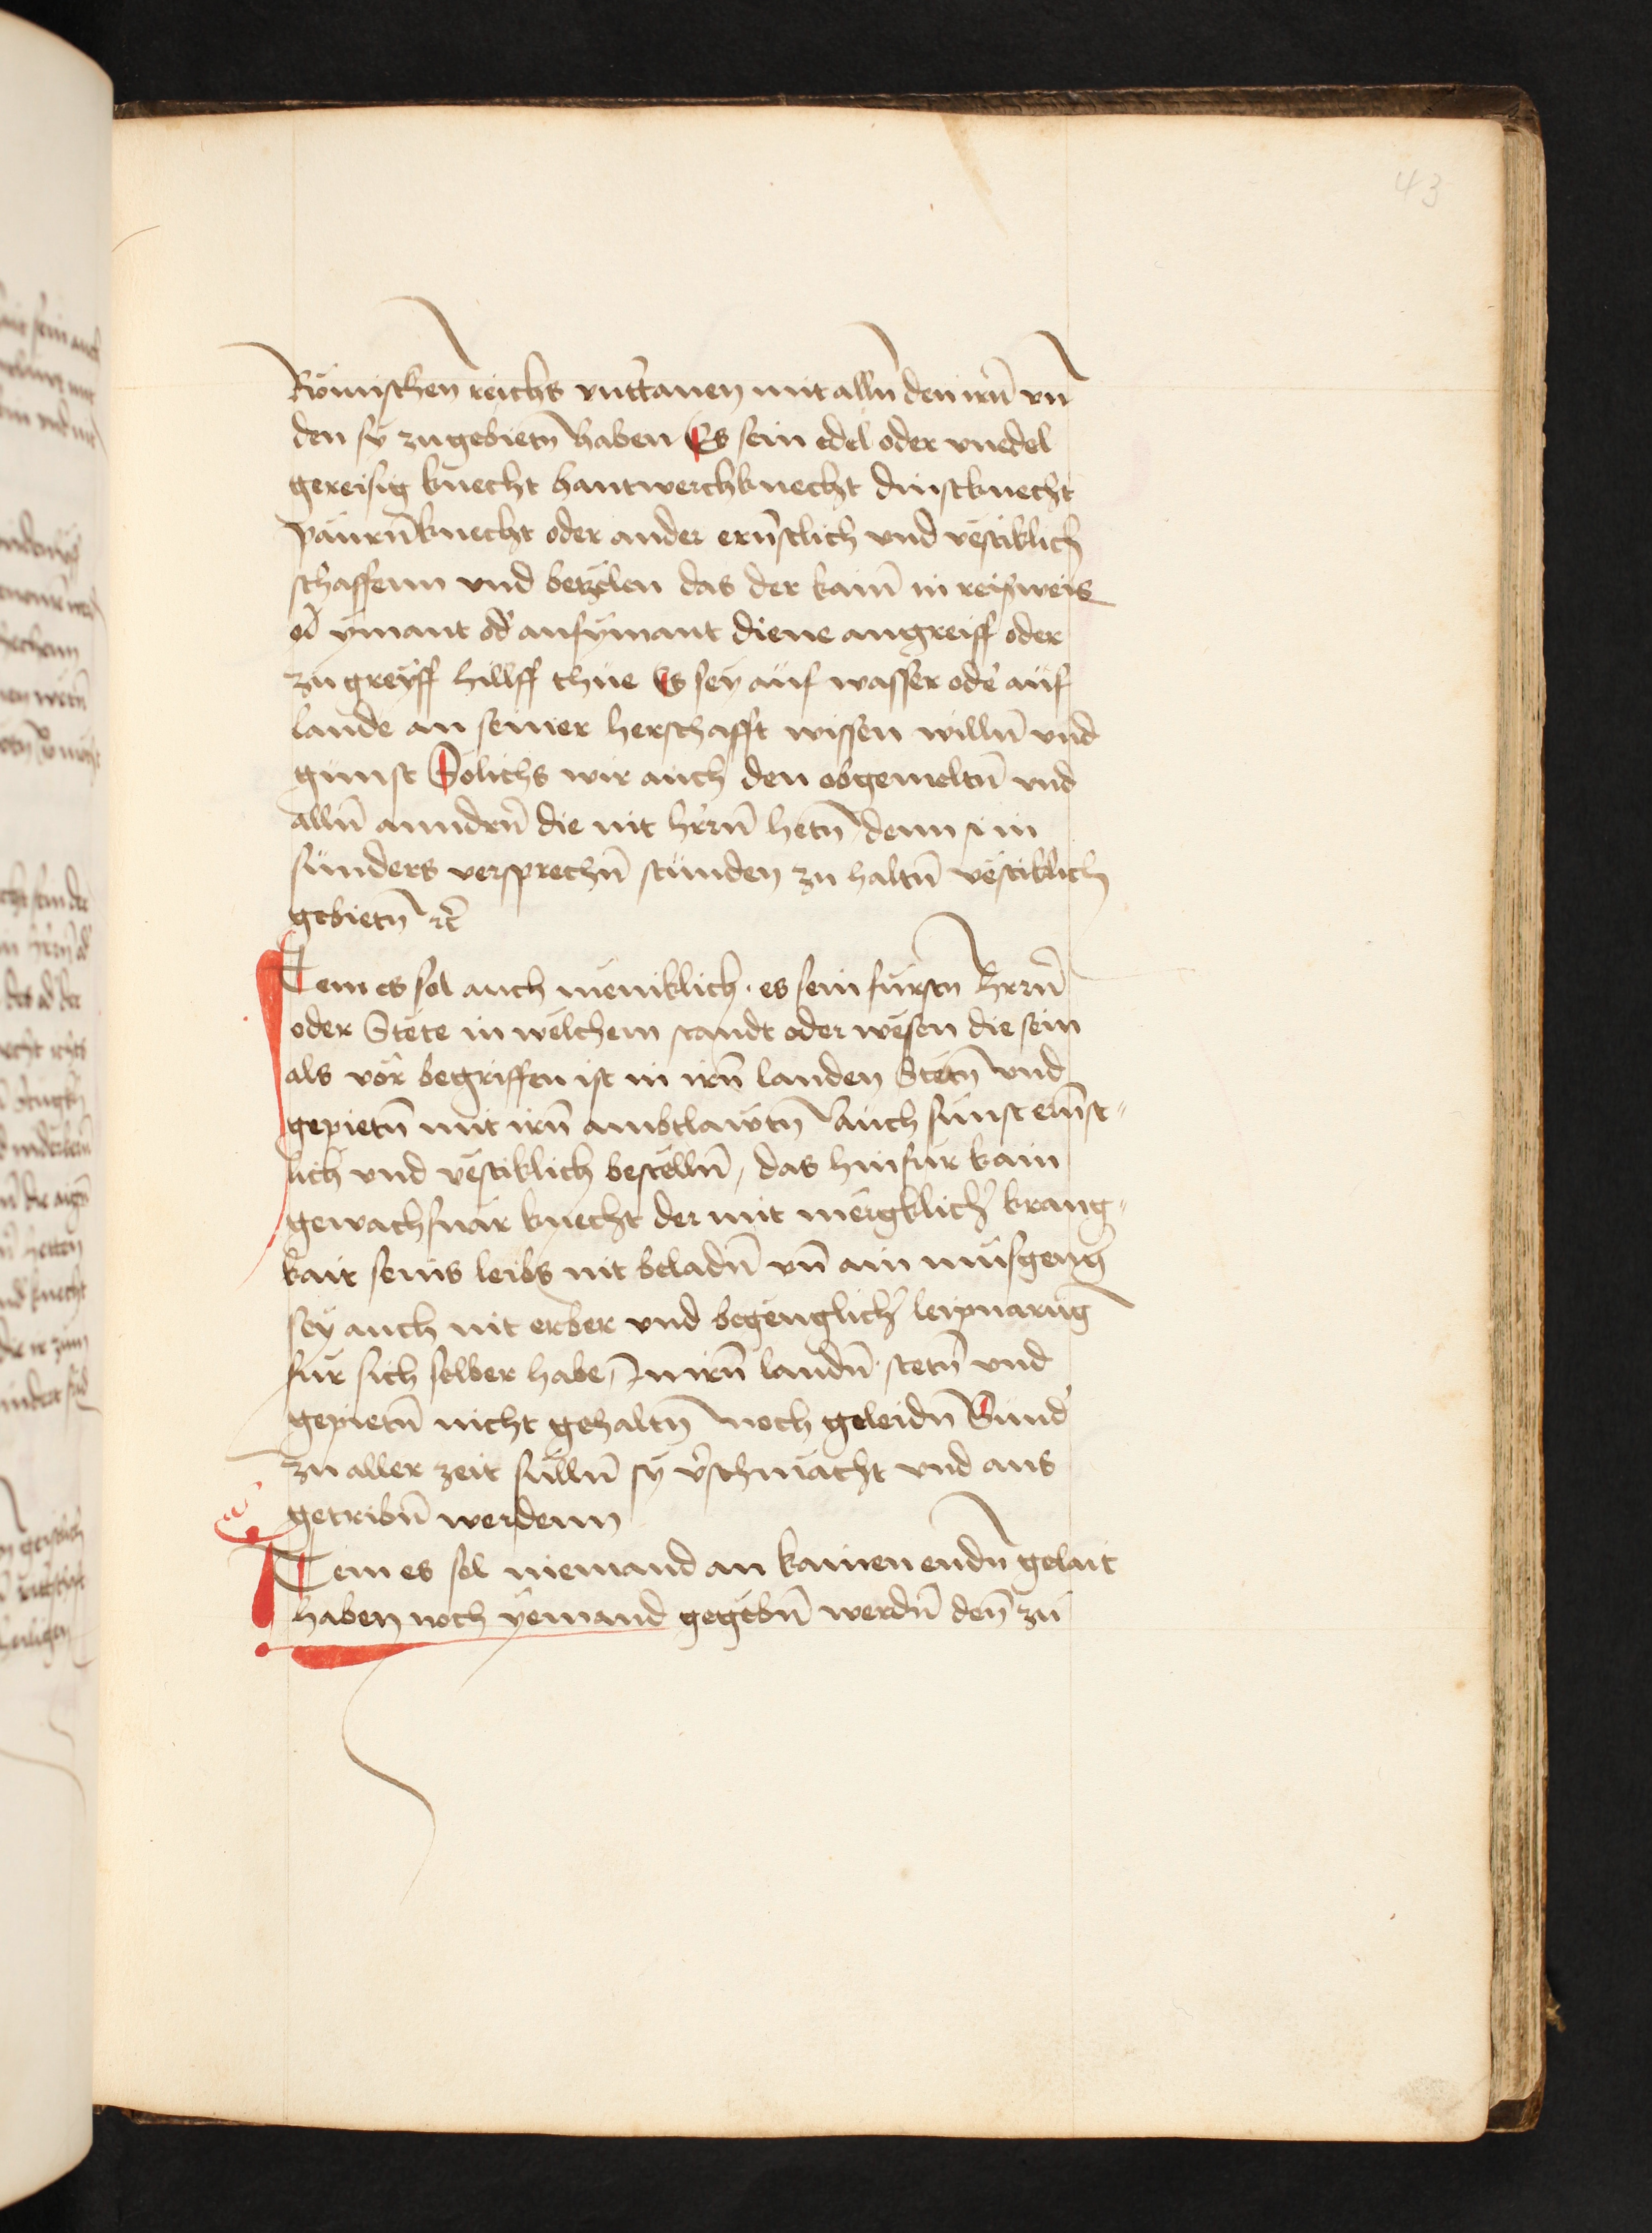 43
Römischen reichs vnttanen mit alln̄ den irn̄ vn̄
den sy zugebietn̄ haben Es sein edel oder vnedel
gereisig knecht hantwerchknecht dinstknecht
paŭrn̄knecht oder ander ern̄stlich vnd vestiklich
schaffenn vnd betzelen das der kain̄ in reisweis
od̄ ymant od̄ auf ymant diene angreiff oder
zugreyff hillff thüe Es sey auf wasser oder auf
lande an seiner herschafft wissen willn̄ vnd
gŭnst Solichs wir auch den obgemeltn̄ vnd
alln̄ anndrn̄ die nit hr̄rn̄ hetn̄ denn in
sŭnders versprechn̄ stŭnden zu haltn̄ vestiklich
gebietn̄ ꝛc̄
Item es sol auch meniklich · es sein fürstn̄ hr̄rn̄
oder Stete in welchem standt oder wesen die sein
als vor begriffen ist in irn̄ landen Stetn̄ vnd
gepietn̄ mit irn̄ ambtlawtn̄ auch sŭnst ern̄st„
lich vnd vestiklich bestelln̄, das hinfür kain
gewachsnär knecht der mit mergklicher krang„
kait seins leibs nit beladn̄ vn̄ ain müsgenger
sey auch nit erber vnd begenglicher leipnarung
für sich selber habe, in irn̄ landn̄ · stetn̄ vnd
gepietn̄ nicht gehaltn̄ noch geleidn̄ Sŭnd̄
zu aller zeit sülln̄ sy v̄schmacht vnd aus
getribn̄ werdenn
Item es sol niemand an kainen endn̄ gelait
haben noch yemand gegebn̄ werdn̄ den̄ zu